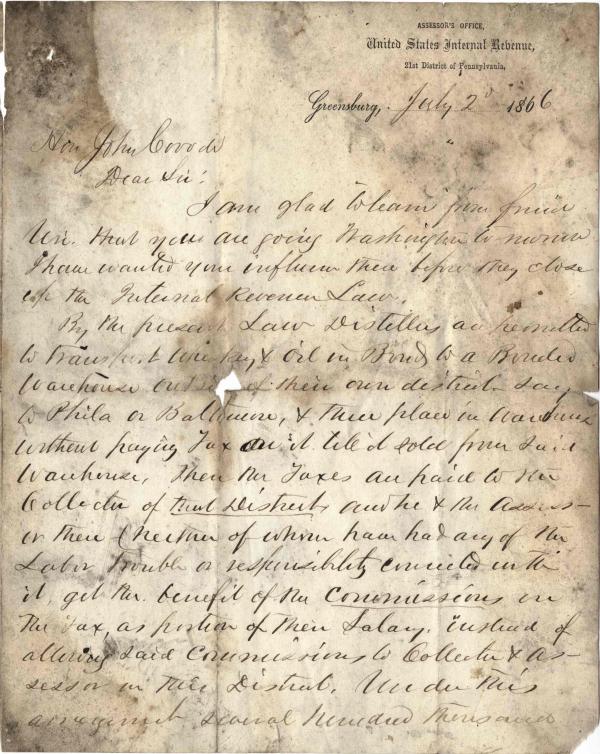 ASSESSOR'S OFFICE,
United States Internal Revenue,
21st District of Pennsylvania,
Greensburg, July 2d 1866
Hon John Covode
Dear Sir:
I am glad to learn from
that you are going Washington to-morrow
I have wanted your influence there before they close
up the Internal Revenue Law.
By the present Law Distillers are permitted
to transport Whiskey & Oil in Bond to a Bonded
Warehouse outside of their own district say
to Phila or Baltimore, & there place in Warehouse
without paying Tax on it till it sold from said
Warehouse, then the Taxes are paid to the
Collector of that District and he & the Assess-
or there (neither of whom have had any of the
Labor Trouble or responsibility connected with
it, get the benefit of the Commissions on
the Tax, as portion of their Salary, instead of
allowing said Commissions to Collector & As-
sessor in this District. Under this
arrangement several hundred thousand